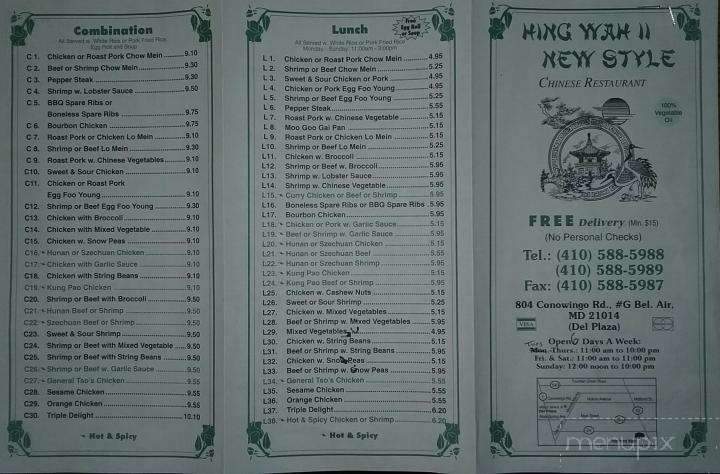 Combination
All Served w. White Rice or Pork Fried Rice
Egg Roll and Soup
C 1. Chicken or Roast Pork Chow Mein 9.10
C 2. Beef or Shrimp Chow Mein 9.30
C 3. Pepper Steak 9.30
C 4. Shrimp w. Lobster Sauce 9.50
C 5. BBQ Spare Ribs or
Boneless Spare Ribs 9.75
C 6. Bourbon Chicken 9.75
C 7. Roast Pork or Chicken Lo Mein 9.10
C 8. Shrimp or Beef Lo Mein 9.30
C 9. Roast Pork w. Chinese Vegetables 9.10
C10. Sweet & Sour Chicken 9.10
C11. Chicken or Roast Pork
Egg Foo Young 9.10
C12. Shrimp or Beef Egg Foo Young 9.30
C13. Chicken with Broccoli 9.10
C14. Chicken with Mixed Vegetable 9.10
C15. Chicken w. Snow Peas 9.10
C16. Hunan or Szechuan Chicken 9.10
C17. Chicken with Garlic Sauce 9.10
C18. Chicken with String Beans 9.10
C19. Kung Pao Chicken 9.10
C20. Shrimp or Beef with Broccoli 9.50
C21. Hunan Beef or Shrimp 9.50
C22. Szechuan Beef or Shrimp 9.50
C23. Sweet & Sour Shrimp 9.50
C24. Shrimp or Beef with Mixed Vegetable 9.50
C25. Shrimp or Beef with String Beans 9.50
C26. Shrimp or Beef w. Garlic Sauce 9.50
C27. General Tso's Chicken 9.55
C28. Sesame Chicken 9.55
C29. Orange Chicken 9.55
C30. Triple Delight 10.10
Hot & Spicy
Lunch
Free
Egg Roll
or Soup
All Served w. White Rice or Pork Fried Rice
Monday - Sunday: 11:00am - 3:00pm
L 1. Chicken or Roast Pork Chow Mein 4.95
L 2. Shrimp or Beef Chow Mein 5.25
L 3. Sweet & Sour Chicken or Pork 4.95
L 4. Chicken or Pork Egg Foo Young 4.95
L 5. Shrimp or Beef Egg Foo Young 5.25
L 6. Pepper Steak 5.55
L 7. Roast Pork w. Chinese Vegetable 5.15
L 8. Moo Goo Gai Pan 5.15
L 9. Roast Pork or Chicken Lo Mein 5.15
L10. Shrimp or Beef Lo Mein 5.25
L11. Chicken w. Broccoli 5.15
L12. Shrimp or Beef w. Broccoli 5.95
L13. Shrimp w. Lobster Sauce 5.95
L14. Shrimp w. Chinese Vegetable 5.95
L15. Curry Chicken or Beef or Shrimp 5.95
L16. Boneless Spare Ribs or BBQ Spare Ribs 5.95
L17. Bourbon Chicken 5.95
L18. Chicken or Pork w. Garlic Sauce 5.15
L19. Beef or Shrimp w. Garlic Sauce 5.95
L20. Hunan or Szechuan Chicken 5.15
L21. Hunan or Szechuan Beef 5.55
L22. Hunan or Szechuan Shrimp 5.95
L23. Kung Pao Chicken 5.15
L24. Kung Pao Beef or Shrimp 5.95
L25. Chicken w. Cashew Nuts 5.15
L26. Sweet or Sour Shrimp 5.25
L27. Chicken w. Mixed Vegetables 5.15
L28. Beef or Shrimp w. Mixed Vegetables 5.95
L29. Mixed Vegetables 4.95
L30. Chicken w. String Beans 5.15
L31. Beef or Shrimp w. String Beans 5.95
L32. Chicken w. Snow Peas 5.15
L33. Beef or Shrimp w. Snow Peas 5.95
L34. General Tso's Chicken 5.55
L35. Sesame Chicken 5.55
L36. Orange Chicken 5.55
L37. Triple Delight 6.20
L38. Hot & Spicy Chicken or Shrimp 6.20
Hot & Spicy
HING WAH II
NEW STYLE
CHINESE RESTAURANT
100%
Vegetable
Oil
FREE Delivery (Min. $15)
(No Personal Checks)
Tel.: (410) 588-5988
(410) 588-5989
Fax: (410) 588-5987
804 Conowingo Rd., #G Bel. Air,
MD 21014
(Del Plaza)
VISA
Open 7 Days A Week:
Tues
Mon.-Thurs.: 11:00 am to 10:00 pm
Fri. & Sat.: 11:00 am to 11:00 pm
Sunday: 12:00 noon to 10:00 pm
menupix